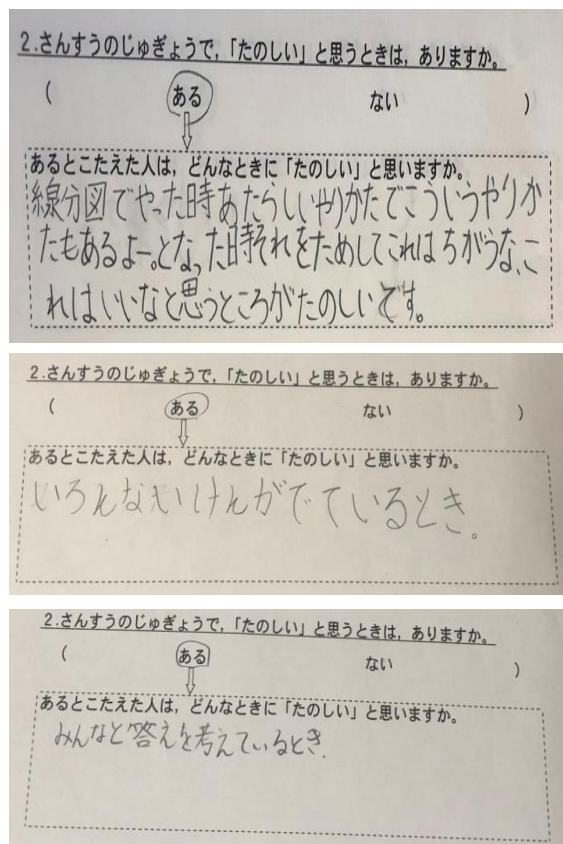 2.さんすうのじゅぎょうで,「たのしい」と思うときは,ありますか。
( ある ない )
あるとこたえた人は,どんなときに「たのしい」と思いますか。
線分図でやった時あたらしいやりかたでこういうやりか
たもあるよー。となった時それをためしてこれはちがうな、こ
れはいいなと思うところがたのしいです。
2.さんすうのじゅぎょうで,「たのしい」と思うときは,ありますか。
( ある ない )
あるとこたえた人は,どんなときに「たのしい」と思いますか。
いろんないけんがでているとき。
2.さんすうのじゅぎょうで,「たのしい」と思うときは,ありますか。
( ある ない )
あるとこたえた人は,どんなときに「たのしい」と思いますか。
みんなと答えを考えているとき.